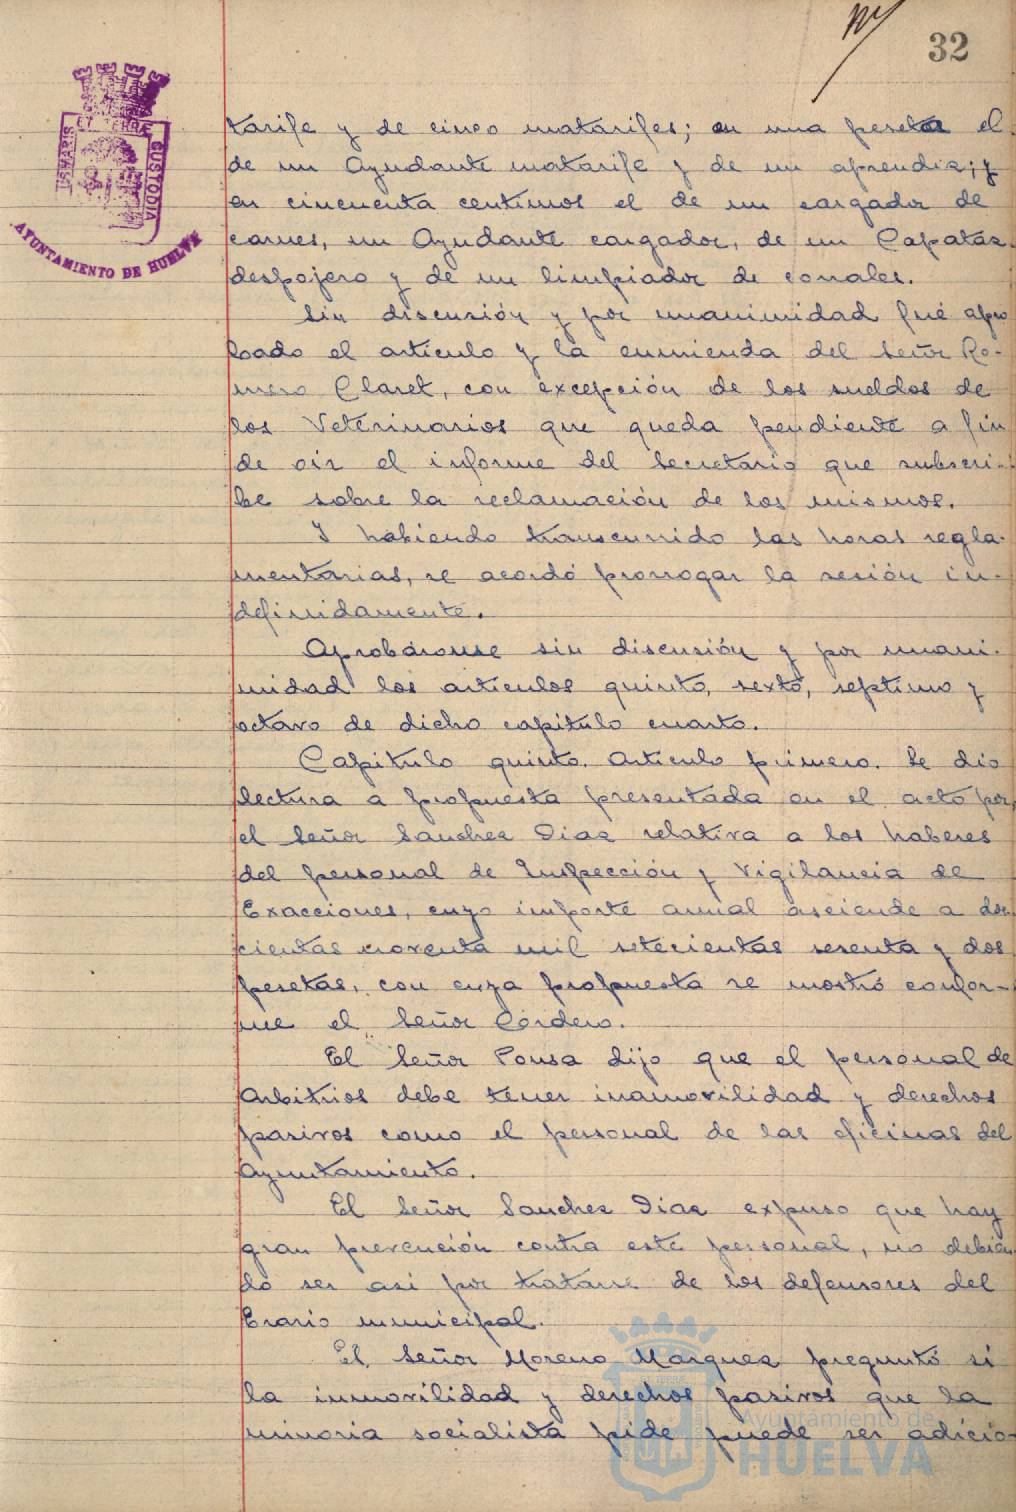 32
PORTUS MARIS
ET TERRÆ
CUSTODIA
AYUNTAMIENTO DE HUELVA
tarife y de cinco matarifes; en una peseta el
de un Ayudante matarife y de un aprendiz; y
en cincuenta centimos el de un cargador de
carnes, un Ayudante cargador, de un Capataz
despojero y de un limpiador de corrales.
Sin discusión y por unanimidad fué apro
bado el artículo y la enmienda del Señor Ro-
mero Claret, con excepción de los sueldos de
los Veterinarios que queda pendiente a fin
de oir el informe del Secretario que subscri-
be sobre la reclamación de los mismos.
Y habiendo transcurrido las horas regla-
mentarias, se acordó prorrogar la sesión in-
definidamente.
Aprobáronse sin discusión y por unani-
midad los artículos quinto, sexto, septimo y
octavo de dicho capítulo cuarto.
Capítulo quinto. Artículo primero. Se dio
lectura a propuesta presentada en el acto por
el Señor Sanchez Diaz relativa a los haberes
del personal de Inspección y Vigilancia de
Exacciones, cuyo importe anual asciende a dos
cientas noventa mil setecientas sesenta y dos
pesetas, con cuya propuesta se mostró confor-
me el Señor Cordero.
El Señor Ponsa dijo que el personal de
Arbitrios debe tener inamovilidad y derechos
pasivos como el personal de las oficinas del
Ayuntamiento.
El Señor Sanchez Diaz expuso que hay
gran prevención contra este personal, no debien
do ser así por tratarse de los defensores del
Erario municipal.
El Señor Moreno Marquez preguntó si
la inmovilidad y derechos pasivos que la
minoria socialista pide puede ser adicio-
Ayuntamiento de
HUELVA